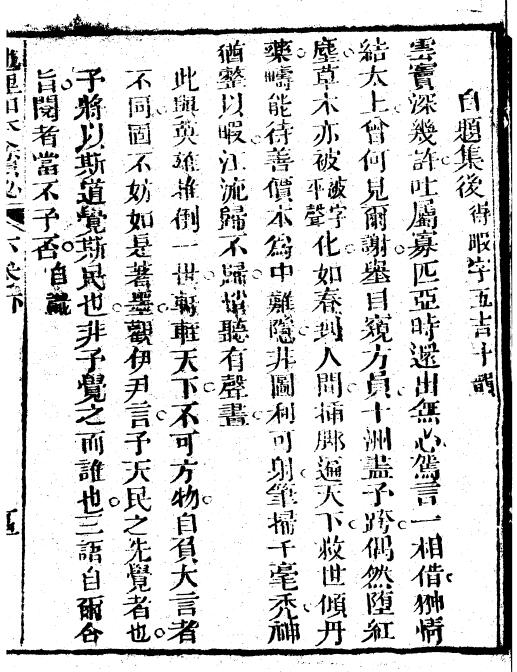 自題集後 得暇字五言十韻
雲竇深幾許吐屬寡匹亞時還出無心駕言一相借狎情
結太上曾何見爾謝舉目窺方員十洲盡予跨偶然墮紅
塵草木亦被 被字平聲 化如春到人間插脚遍天下救世傾丹
藥疇能待善價本為中難隱井圖利可射筆掃千毫禿神
猶整以暇江流歸不歸悄聽有聲畫
此與英雄推倒一世軒輊天下不可方物自負大言者
不同固不妨如是著墨觀伊尹言予天民之先覺者也
予將以斯道覺斯民也非予覺之而誰也三語自爾合
旨閱者當不予否 自識
卷下